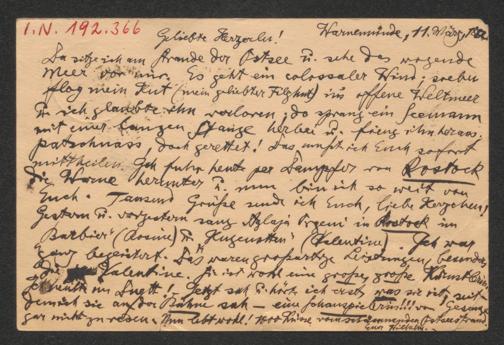 I.N. 192.366
Geliebte Herzerln! Warnemünde, 11. März
Da sitze ich am Strande der Ostsee u. sehe das wogende
Meer vor mir. Es geht ein colossaler Wind; soeben
flog mein Hut (mein geliebter Filzhut) ins offene Weltmeer
u. ich glaubte ihn verloren; da sprang ein Seemann
mit einer langen Stange herbei u. fieng ihn heraus;
patschnass, doch gerettet! Das mußt ich Euch sofort
mittheilen. Ich fuhr heut per Dampfer von Rostock
die Warne herunter u. nun bin ich so weit von
Euch. Tausend Grüße sende ich Euch, liebe Herzchen!
Gestern u. vorgestern sang Aglaja Orgeni in Rostock im
Barbier (Rosine) u. Hugenotten (Valentine). Ich war
ganz begeistert. Das waren großartige Leistungen, besonders
die Valentine. Sie ist wohl eine große, große Künstlerin,
im Duett. Jetzt sah u. hört ich erst, was sie ist, seit-
dem ich sie auf der Bühne sah – eine Schauspielerin!!! vom Gesange
gar nicht zu reden. Nun lebt wohl! 1000 Küsse vom Ostseestrand
Euer Wilhelm.